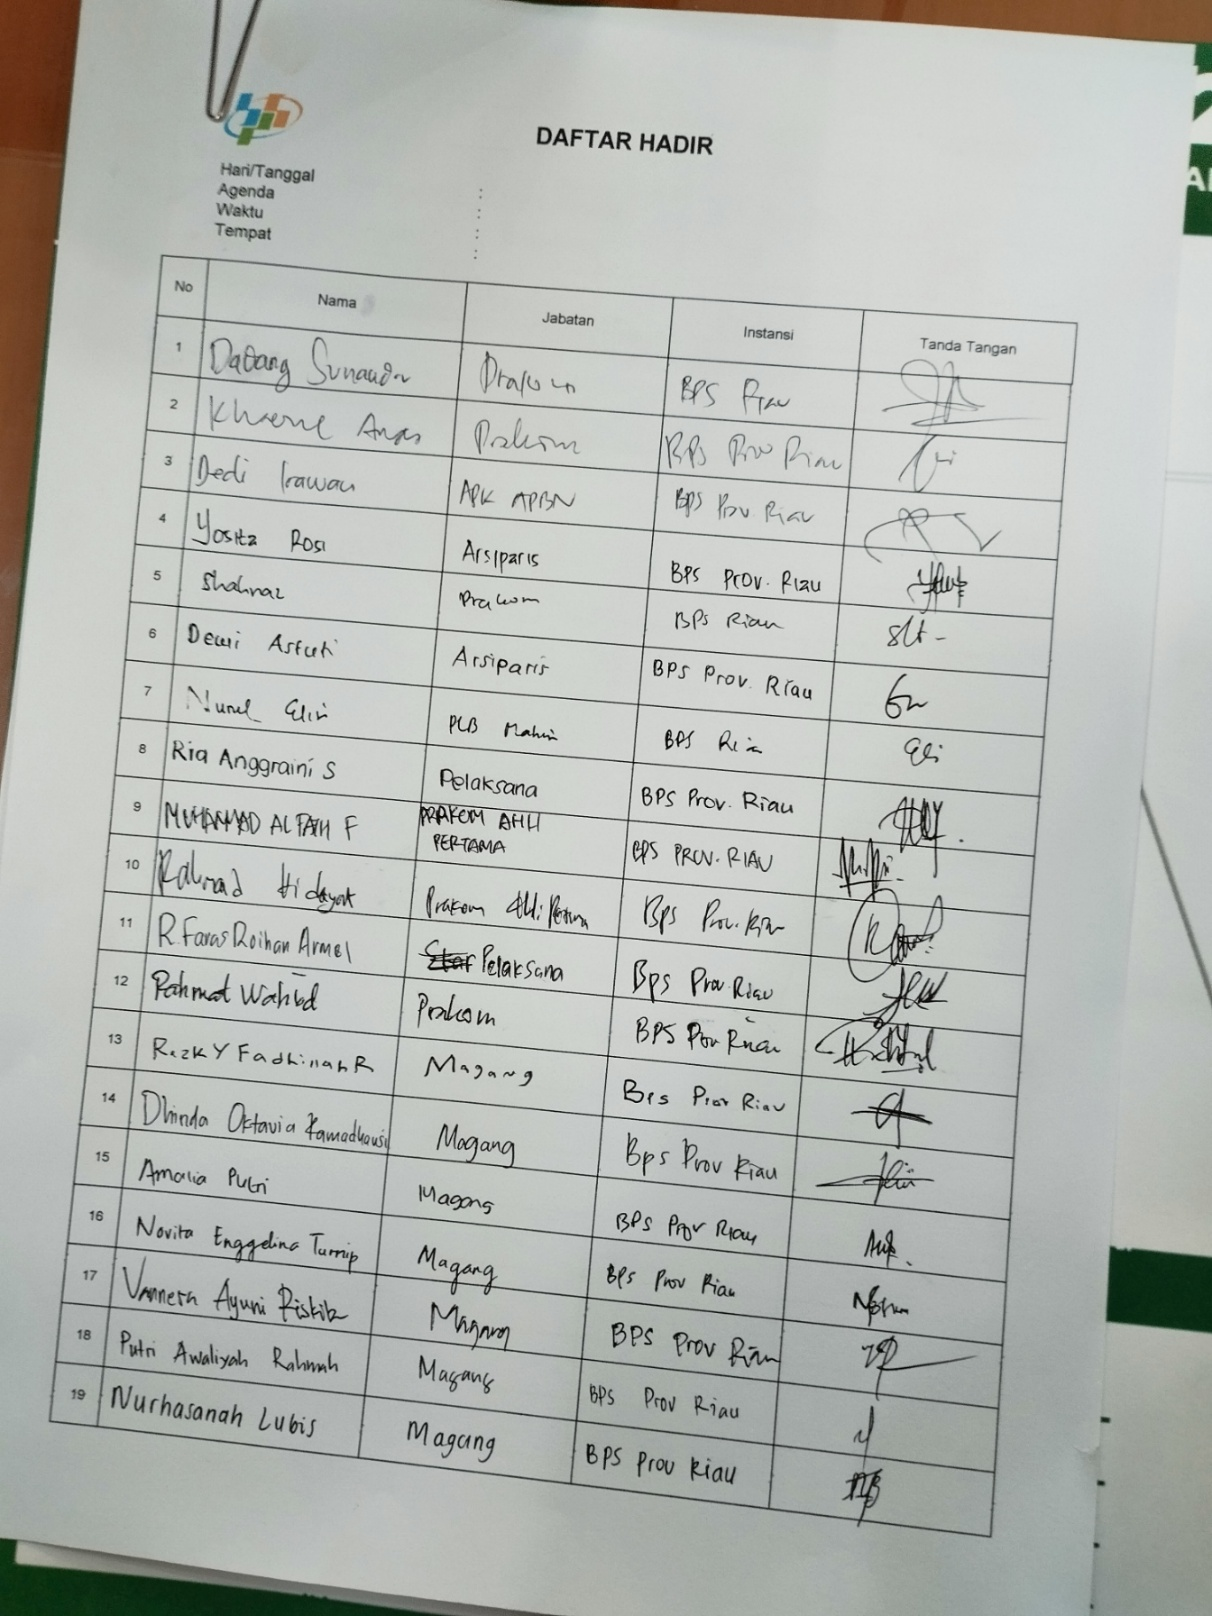 DAFTAR HADIR
Hari/Tanggal :
Agenda :
Waktu :
Tempat :
No Nama Jabatan Instansi Tanda Tangan
1 Dadang Sunandar Prakom BPS Riau
2 Khaerul Anas Prakom BPS Prov Riau
3 Dedi Irawan APK APBN BPS Prov Riau
4 Yosita Rosi Arsiparis BPS PROV. Riau
5 Shahnaz Prakom BPS Riau
6 Dewi Astuti Arsiparis BPS Prov. Riau
7 Nurul BPS Riau
8 Ria Anggraini S Pelaksana BPS Prov. Riau
9 MUHAMMAD AL FATH F PRAKOM AHLI PERTAMA BPS PROV. RIAU
10 Rahmad Hidayat Prakom Ahli Pertama BPS Prov. Riau
11 R. Faras Roihan Armel Pelaksana Bps Prov. Riau
12 Rahmat Wahid Prakom BPS Prov Riau
13 Rezky Fadhillah R Magang Bps Prov Riau
14 Dhinda Oktavia Ramadhansi Magang Bps Prov Riau
15 Amalia Putri Magang BPS Prov Riau
16 Novita Enggelina Turnip Magang BPS Prov Riau
17 Ayuni Magang BPS Prov Riau
18 Putri Awaliyah Rahmah Magang BPS Prov Riau
19 Nurhasanah Lubis Magang BPS Prov Riau